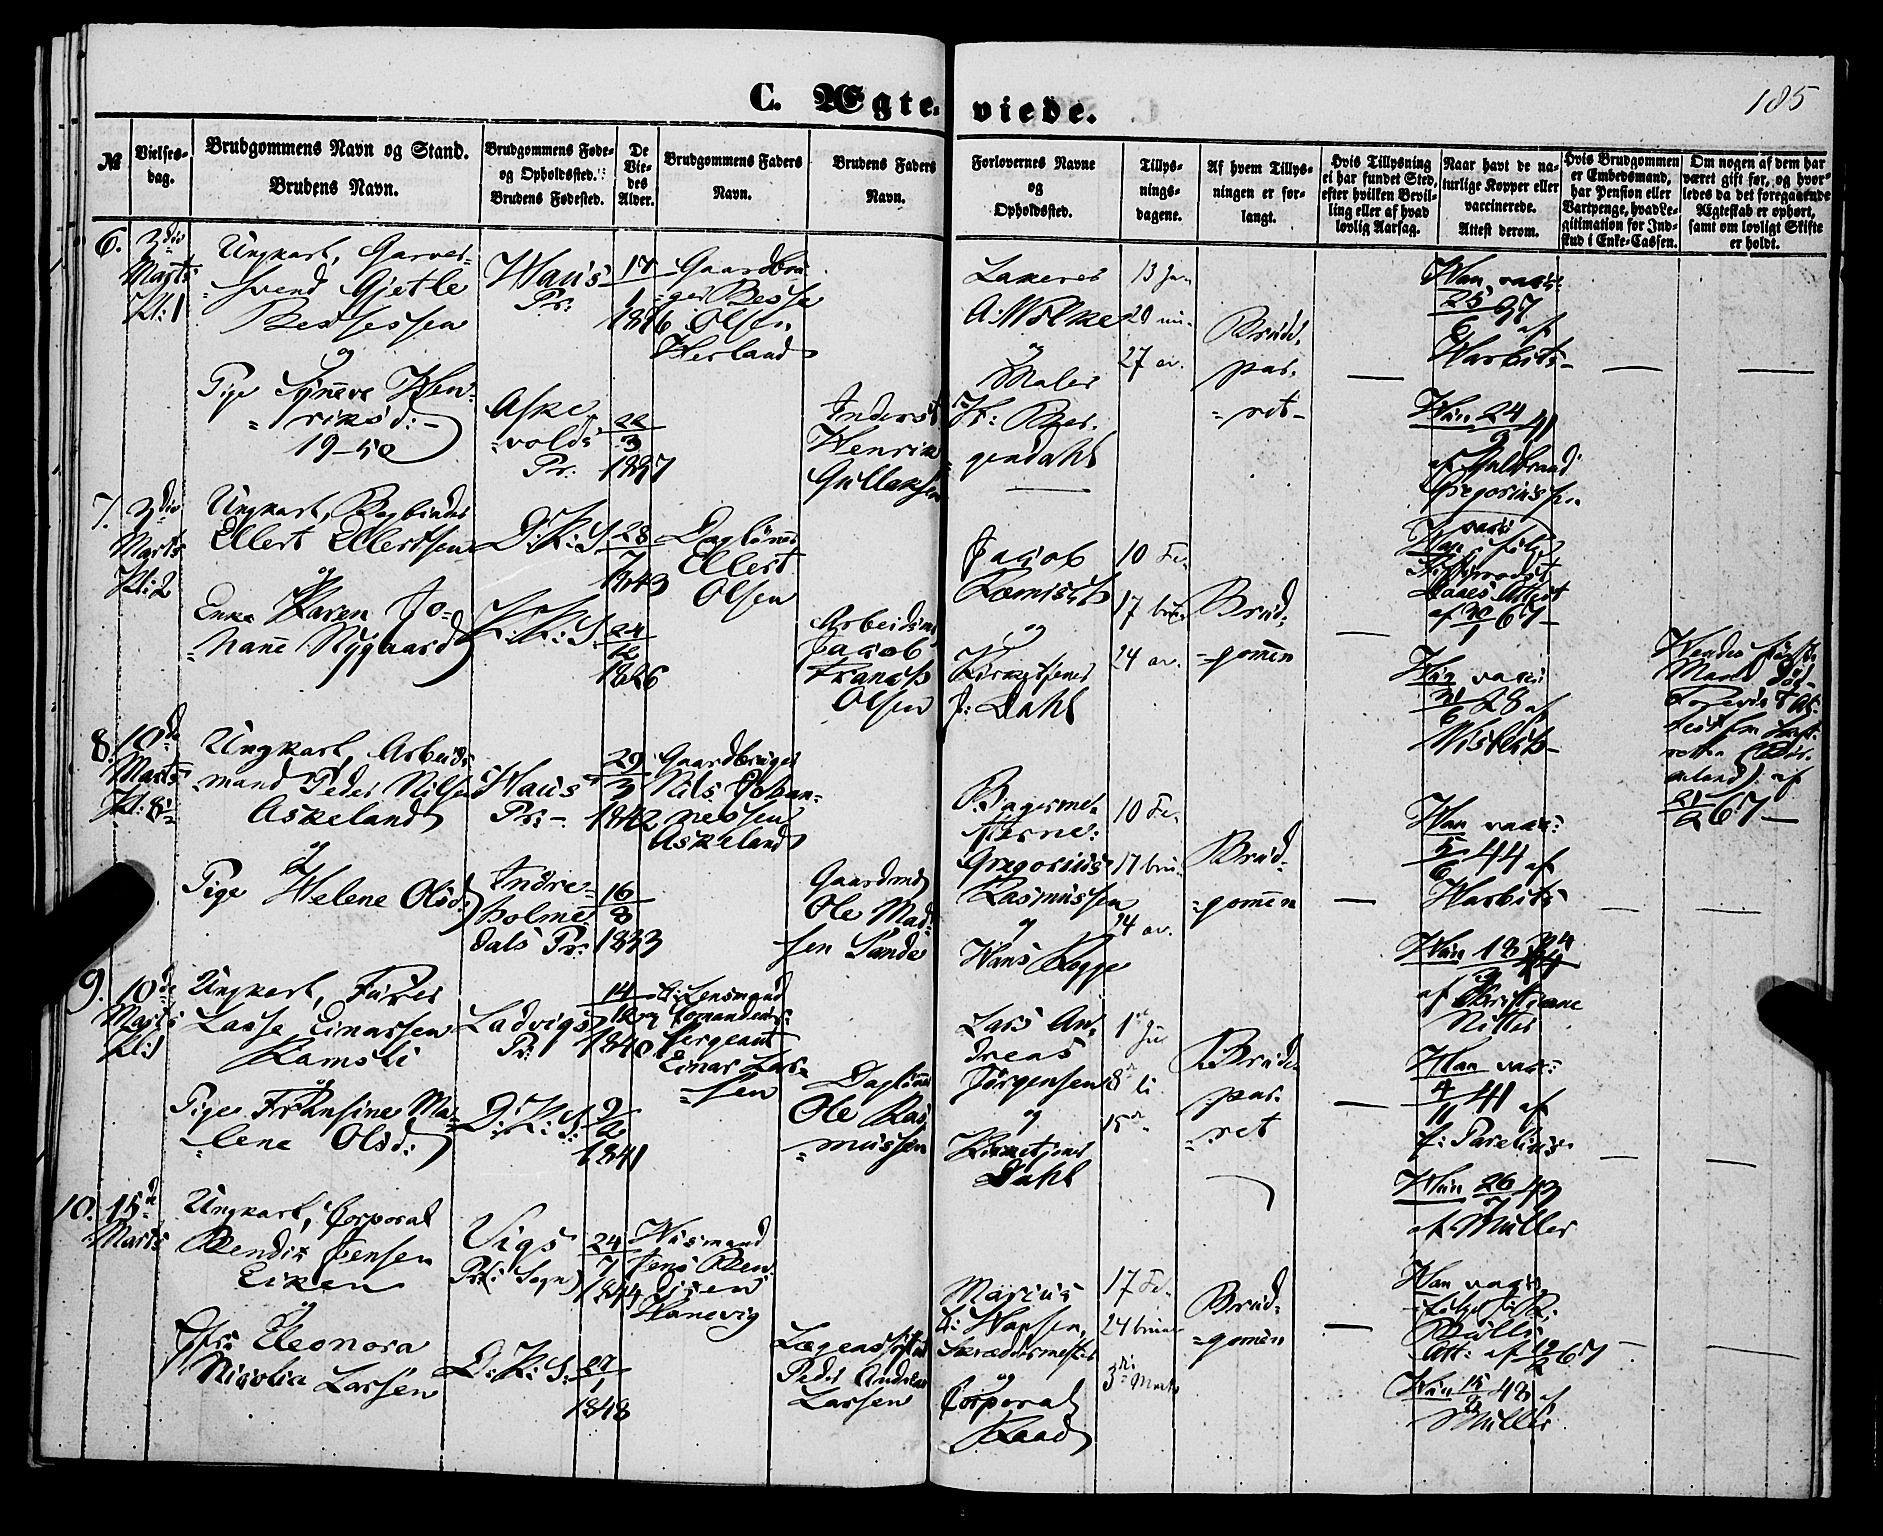 C. Ægte-viede.
185
№
Vielses-
dag.
Brudgommens Navn og Stand.
Brudens Navn.
Brudgommens Føde-
og Opholdssted.
Brudens Fødested.
De
Vie-
des
Alder.
Brudgommens Faders
Navn.
Brudens Faders
Navn.
Forlovernes Navne
og
Opholdssted.
Tillys-
nings-
dagene.
Af hvem Tillys-
ningen er for-
langt.
Hvis Tillysning
ei har fundet Sted,
efter hvilken Bevil-
ling eller af hvad
lovlig Aarsag.
Naar havt de na-
turlige Kopper eller
vaccinerede.
Attest derom.
Hvis Brudgommen
er Embedsmand,
har Pension eller
Vartpenge, hvad Le-
gitimation for Ind-
skud i Enke-Cassen.
Om nogen af dem har
været gift før, og hvor-
ledes da det foregaaende
Ægteskab er ophørt,
samt om lovligt Skifte
er holdt.
6.
3die
Marts
Kl: 1
Ungkarl, Garver-
svend Gjetle
Bessessen
og
Pige Synneve Hen-
riksd:
19-50
Haus
Pr:
Aske-
volds
Pr.
17
1
1836
22
3
1837
Gaardbru-
ger Besse
Olsen
Herland
Inderst
Henrik
Gullaksen
Lakerer
A: Wilke
og
Maler
Fr: Ber-
gendahl
13 Jan
20 nu-
27 ar.
Brude-
par-
ret
Han, vacc:
af
Harbitz
Hun 24
9 41
af Gulbrand
Gregoriussen
7.
3die
Marts
Kl: 2
Ungkarl, Bogbinder
Ellert Ellertsen
og
Enke Karen Jo-
hanne Nygaard
D: K: S.
K: K: S.
28
7
1843
24
12
1826
Daglønner
Ellert
Olsen
Arbeidsmd
Jacob
Frantz
Olsen
Jacob
og
Kirketjener
J: Dahl
10 Fe-
17 bru-
24 ar.
Brud-
gommen
Attest
67
Hun vacc:
28 af
Hendes første
Mand død
af
67
8.
10de
Marts
Ungkarl, Arbeids-
mand Peder Nilsen
Askeland
og
Pige Helene Olsd:
Haus
Pr:
Indre-
holme-
dals Pr:
29
3
1842
16
8
1833
Gaardbruger
Nils Johan-
nessen
Askeland
Gaardmd
Ole Mad-
sen Sande
Bagerme-
sterne:
Gregorius
Rasmussen
og
Hans Kogge
10 Fe-
17 bru-
24 ar.
Brud-
gommen
Han vacc:
5
6 44 af
Harbitz
Hun 18
af Christiane
Ritter
9.
10de
Marts
Kl: 1
Ungkarl, Fører
Lasse Einarssen
Ramsli
og
Pige Fransine Ma-
lene Olsd:
Ladvigs
Pr:
D: K: S:
14
12
1840
9
2
1841
Lensmand
og Comandeer-
Sergeant
Einar Las-
sen
Daglønner
Ole Ras-
mussen
Lars An-
dreas
Jørgensen
og
Kirketjener
Dahl
1 Ju
8 li
15
Brude-
par-
ret
Han vacc:
4
11 41 af
f: Parelius
Hun 26
7 43
af Müller
10.
15de
Marts
Ungkarl, Corporal
Bendix Jensen
Eiken
og
Jfr: Eleonora
Nicolia Larsen
Vigs
Pr: i Sogn
D: K: S:
24
7
1844
27
1
1848
Husmand
Jens Ben-
dixen
Hanevig
Peder Andreas
Larsen
Marius
Hansen,
Skrædermester
og
Corporal
Raad
17 Fe-
24 bruar
3die Marts
Brud-
gommen
Han vacc:
Att: af
67
Hun 15
48 af
Müller